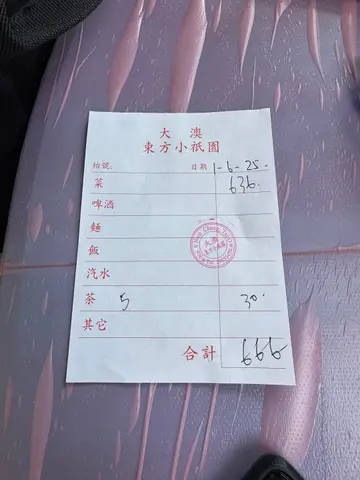 大澳
東方小祇園
枱號 日期 1-6-25-
菜 636.
啤酒
麵
飯
汽水
茶 5 30.
其它
合計 666